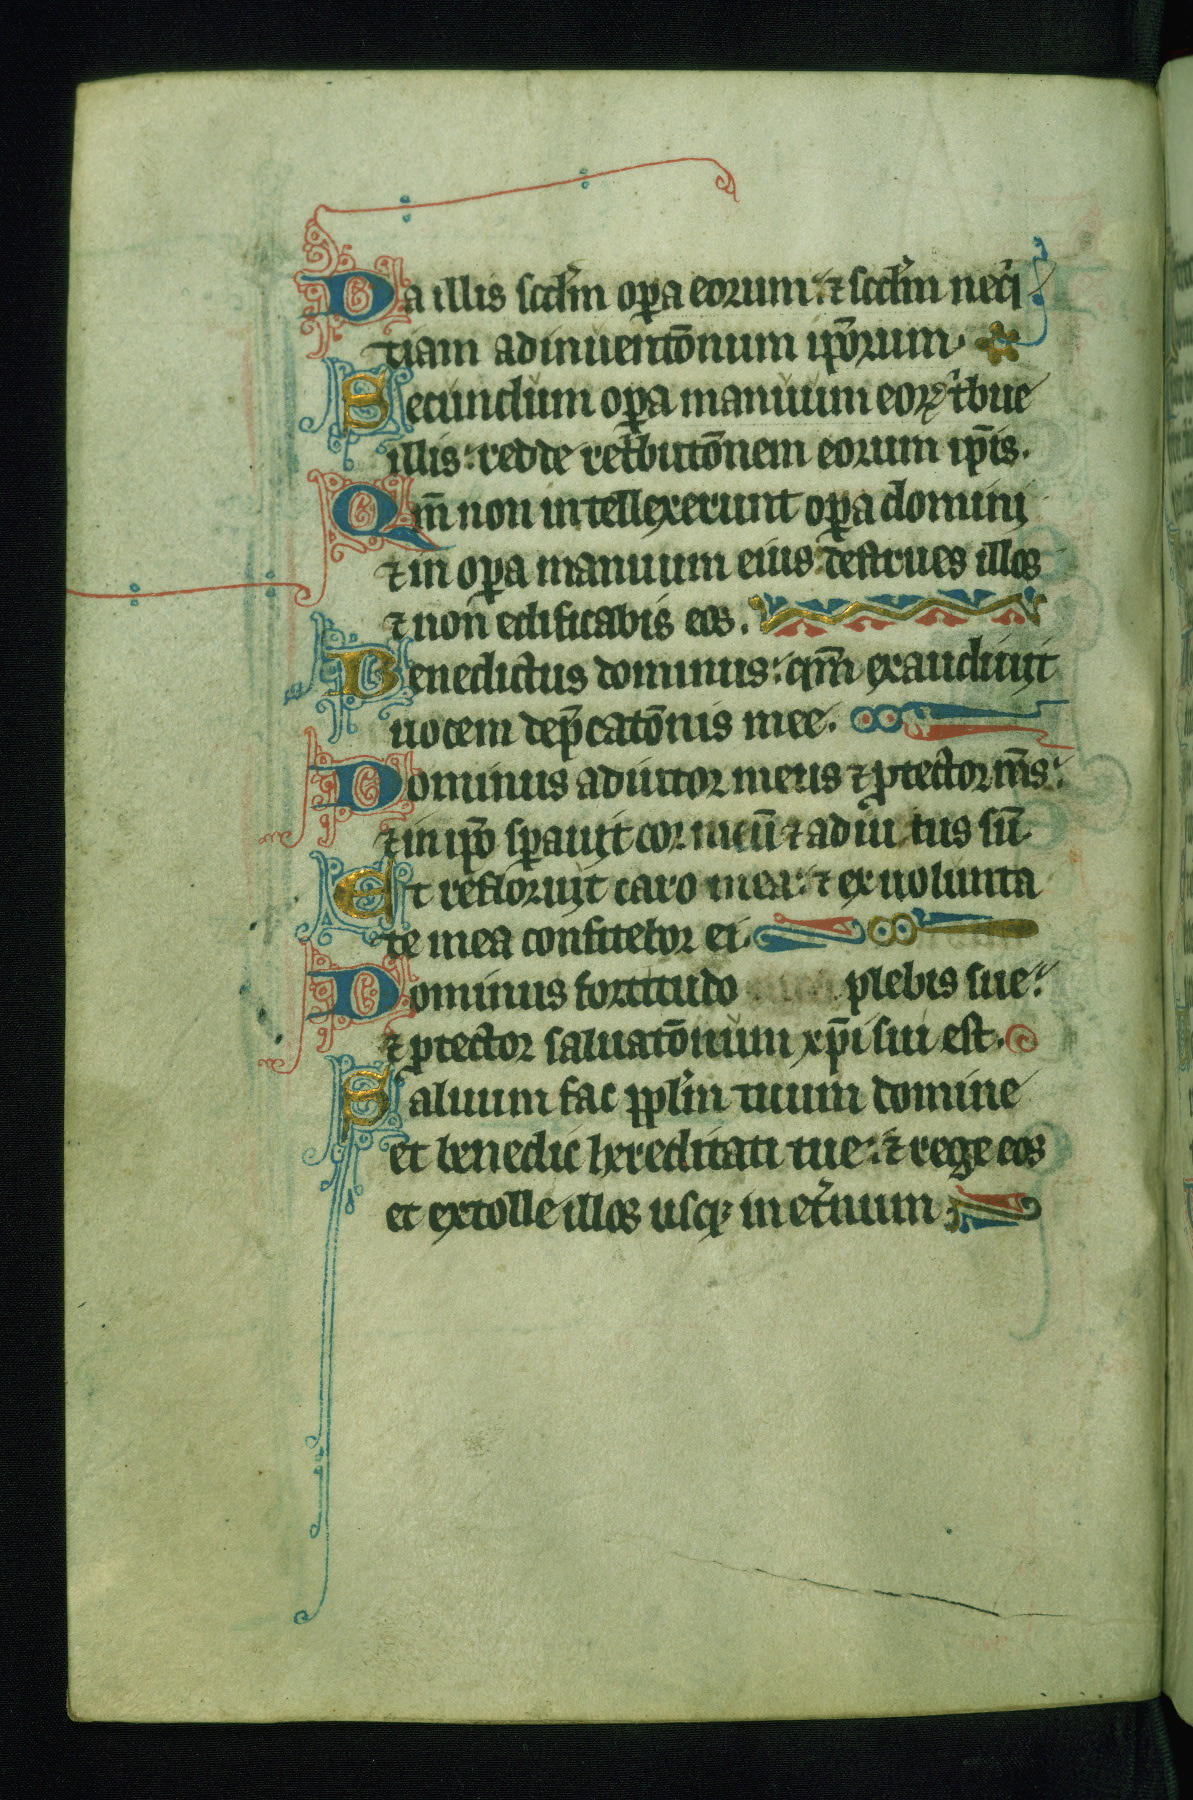 Da illis scd̄m op̄a eorum: ⁊ scd̄m neq̇
tiam adinuentōnum ip̄orum.
Secundum op̄a manuum eoꝝ tⁱbue
illis: redde retⁱbutōnem eorum ip̄is.
Qm̄ non intellexerunt op̄a domini
⁊ in op̄a manuum eius destrues illos
⁊ non edificabis eos.
Benedictus dominus: qm̄ exaudiuit
uocem dep̄catōnis mee.
Dominus adiutor meus ⁊ ꝓtector m̄s:
⁊ in ip̄o sꝑauit cor meū ⁊ adiu tus sū
Et refloruit caro mea: ⁊ ex uolunta
te mea confitebor ei.
Dominus fortitudo plebis sue:
⁊ ꝓtector saluatōnum xp̄i sui est.
Saluum fac ppl̄m tuum domine
et benedic hereditati tue: ⁊ rege eos
et extolle illos usqꝫ in et̄num